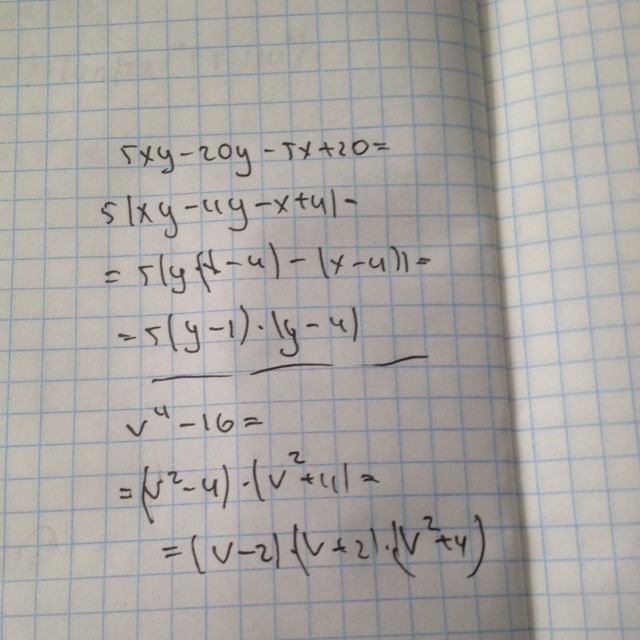 5xy-20y-5x+20=
5(xy-4y-x+4)=
=5(y(x-4)-(x-4))=
=5(y-1)·(y-4)
v⁴-16=
=(v²-4)·(v²+4)=
=(v-2)·(v+2)·(v²+4)